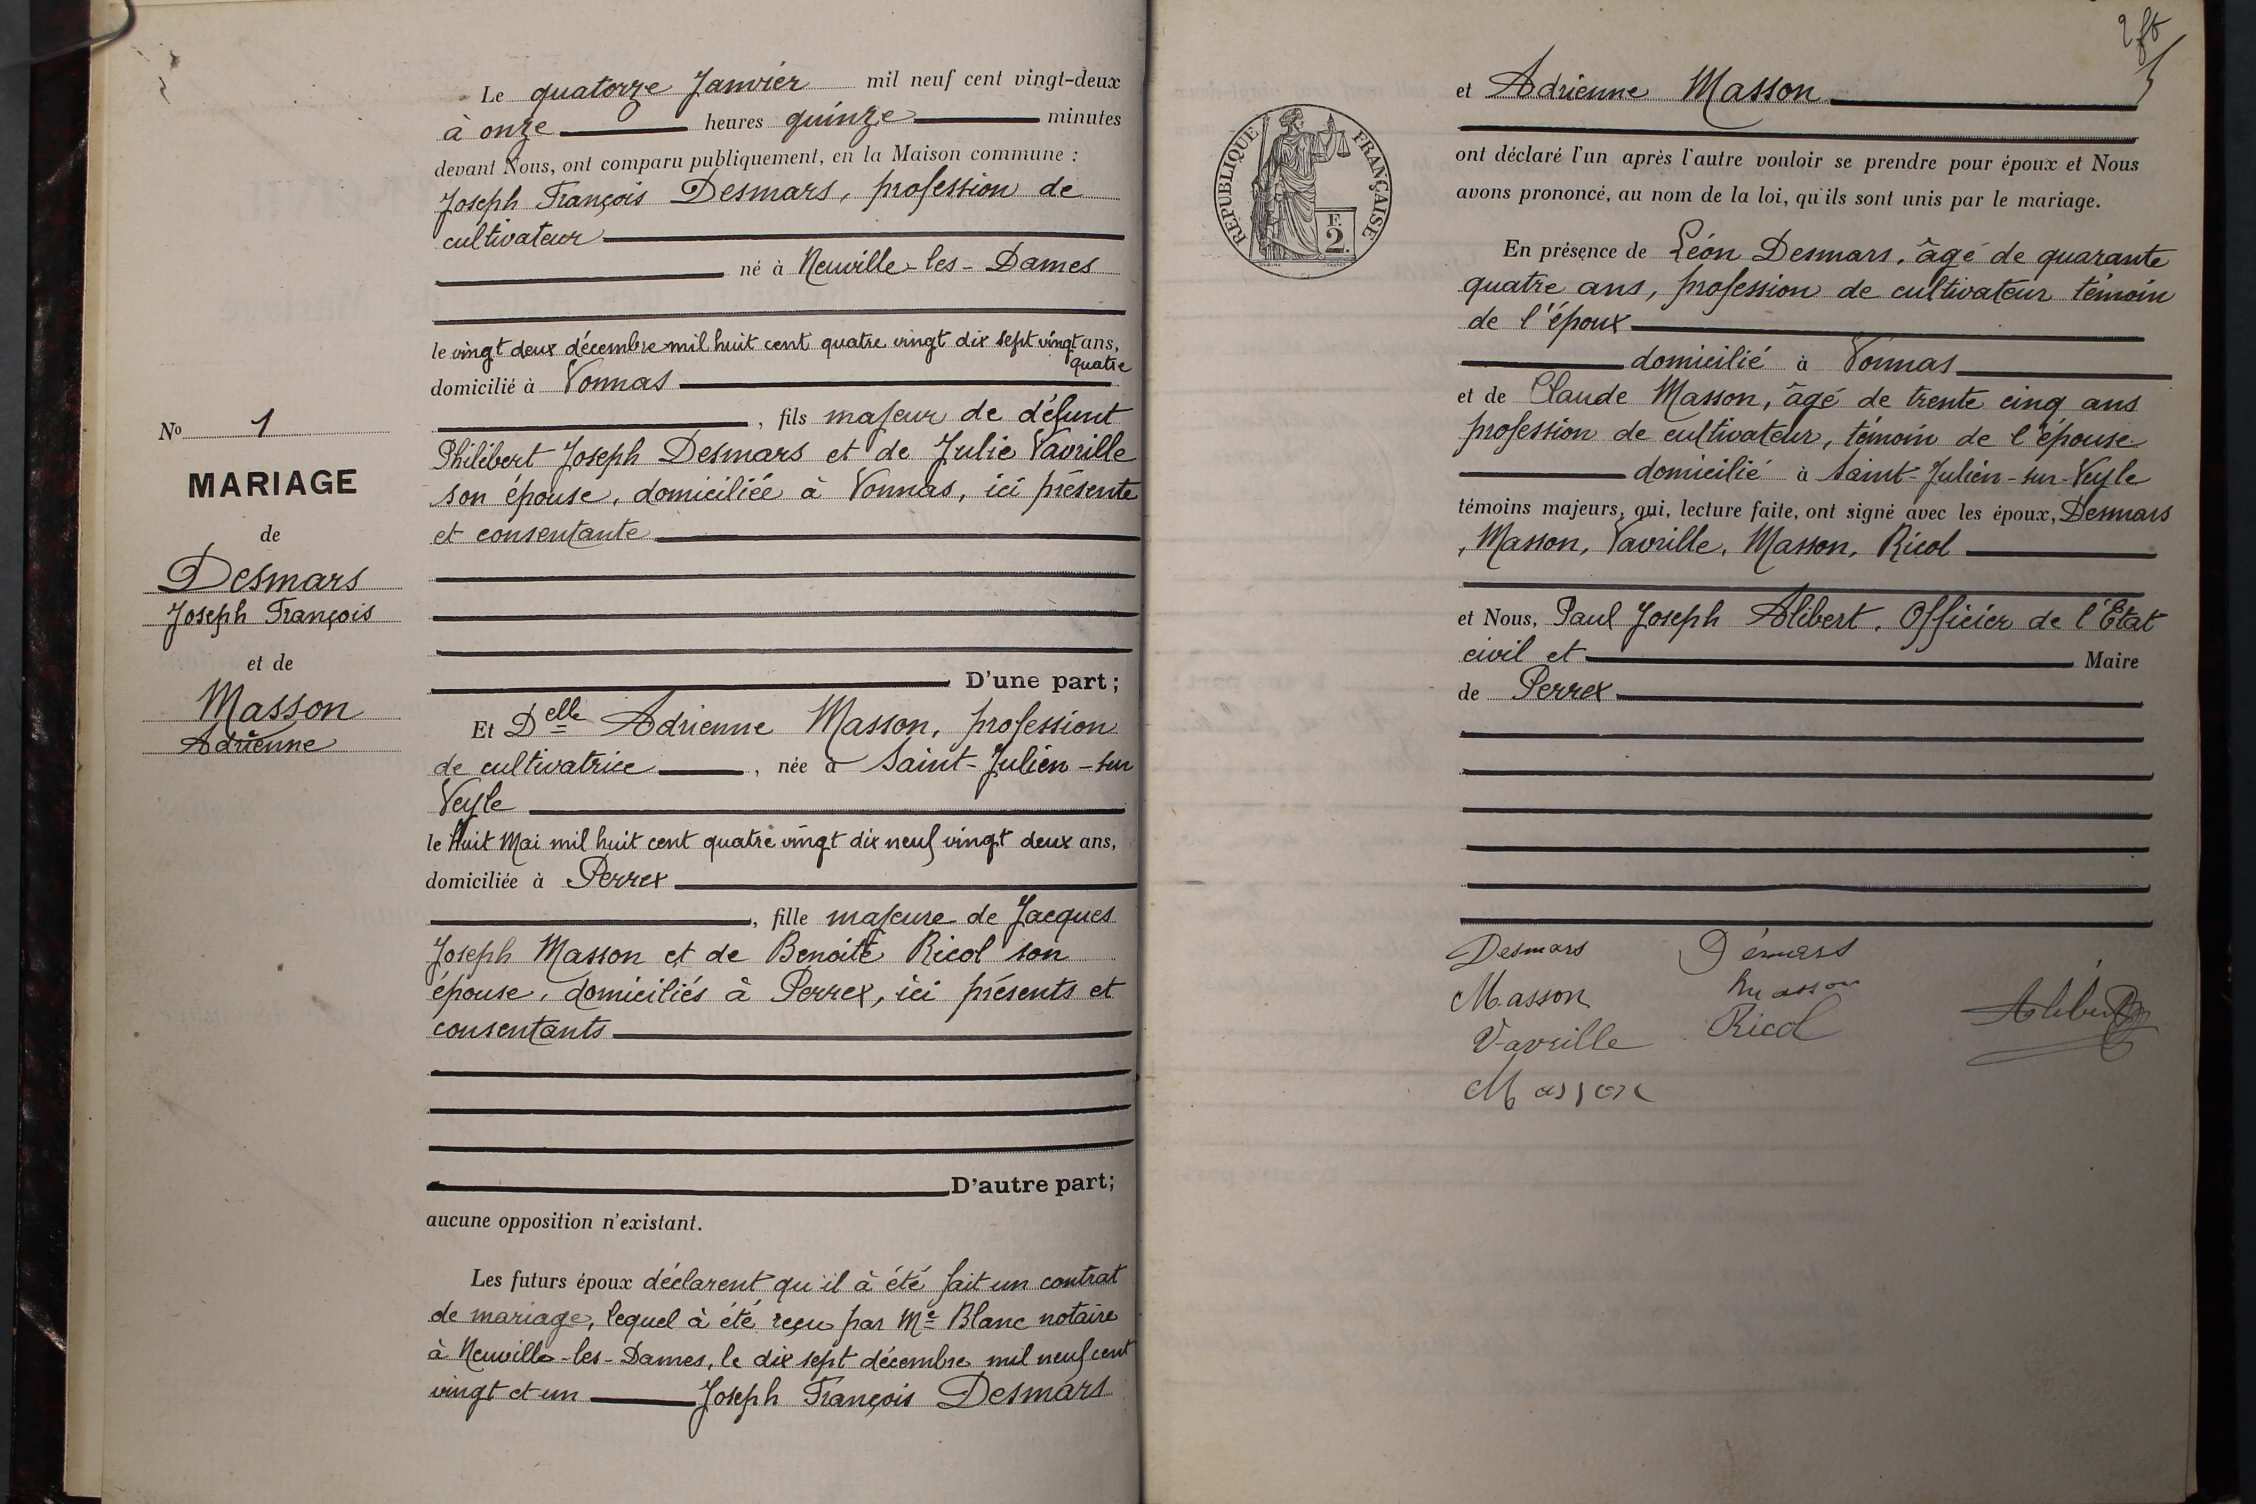 Le quatorze Janvier mil neuf cent vingt-deux
à onze heures quinze minutes
devant Nous, ont comparu publiquement, en la Maison commune :
Joseph François Desmars, profession de
cultivateur
né à Neuville-les-Dames
le vingt deux décembre mil huit cent quatre vingt dix sept vingt ans,
quatre
domicilié à Vonnas
, fils majeur de défunt
Philibert Joseph Desmars et de Julie Vavrille
son épouse, domiciliée à Vonnas, ici présente
et consentante
D'une part ;
Et Delle Adrienne Masson, profession
de cultivatrice, née à Saint-Julien-sur
Veyle
le huit Mai mil huit cent quatre vingt dix neuf vingt deux ans,
domiciliée à Perrex
, fille majeure de Jacques
Joseph Masson et de Benoite Ricol son
épouse, domiciliés à Perrex, ici présents et
consentants
D'autre part;
aucune opposition n'existant.
Les futurs époux déclarent qu'il à été fait un contrat
de mariage, lequel à été reçu par Me Blanc notaire
à Neuville-les-Dames, le dix sept décembre mil neuf cent
vingt et un Joseph François Desmars
No 1
MARIAGE
de
Desmars
Joseph François
et de
Masson
Adrienne
et Adrienne Masson
RÉPUBLIQUE FRANÇAISE
F.
2.
ont déclaré l'un après l'autre vouloir se prendre pour époux et Nous
avons prononcé, au nom de la loi, qu'ils sont unis par le mariage.
En présence de Léon Desmars, âgé de quarante
quatre ans, profession de cultivateur témoin
de l'époux
domicilié à Vonnas
et de Claude Masson, âgé de trente cinq ans
profession de cultivateur, témoin de l'épouse
domicilié à Saint-Julien-sur-Veyle
témoins majeurs, qui, lecture faite, ont signé avec les époux, Desmars
, Masson, Vavrille, Masson, Ricol
et Nous, Paul Joseph Alibert, Officier de l'Etat
civil et Maire
de Perrex
Desmars Démars
Masson Masson
Vavrille Ricol Alibert
Masson